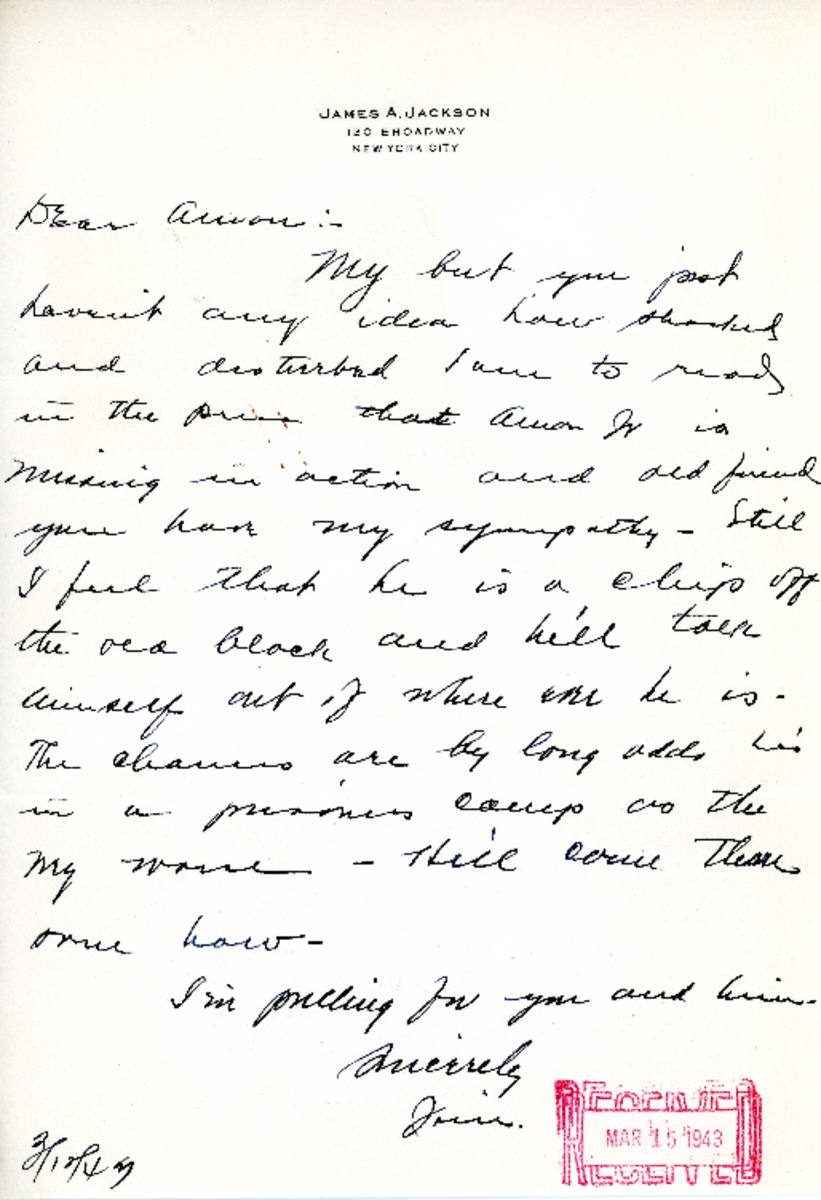 JAMES A. JACKSON
120 BROADWAY
NEW YORK CITY
Dear Amon:-
My but you just
haven't any idea how shocked
and disturbed I am to read
in the press that Amon Jr is
missing in action and old friend
you have my sympathy - Still
I feel that he is a chip off
the old block and he'll talk
himself out of where ever he is -
The chances are by long odds he's
in a prisoners camp as the
my - He'll come thru
some how -
I'm pulling for you and him -
Sincerely
Jim.
3/12/43
RECEIVED
MAR 15 1943
RECEIVED